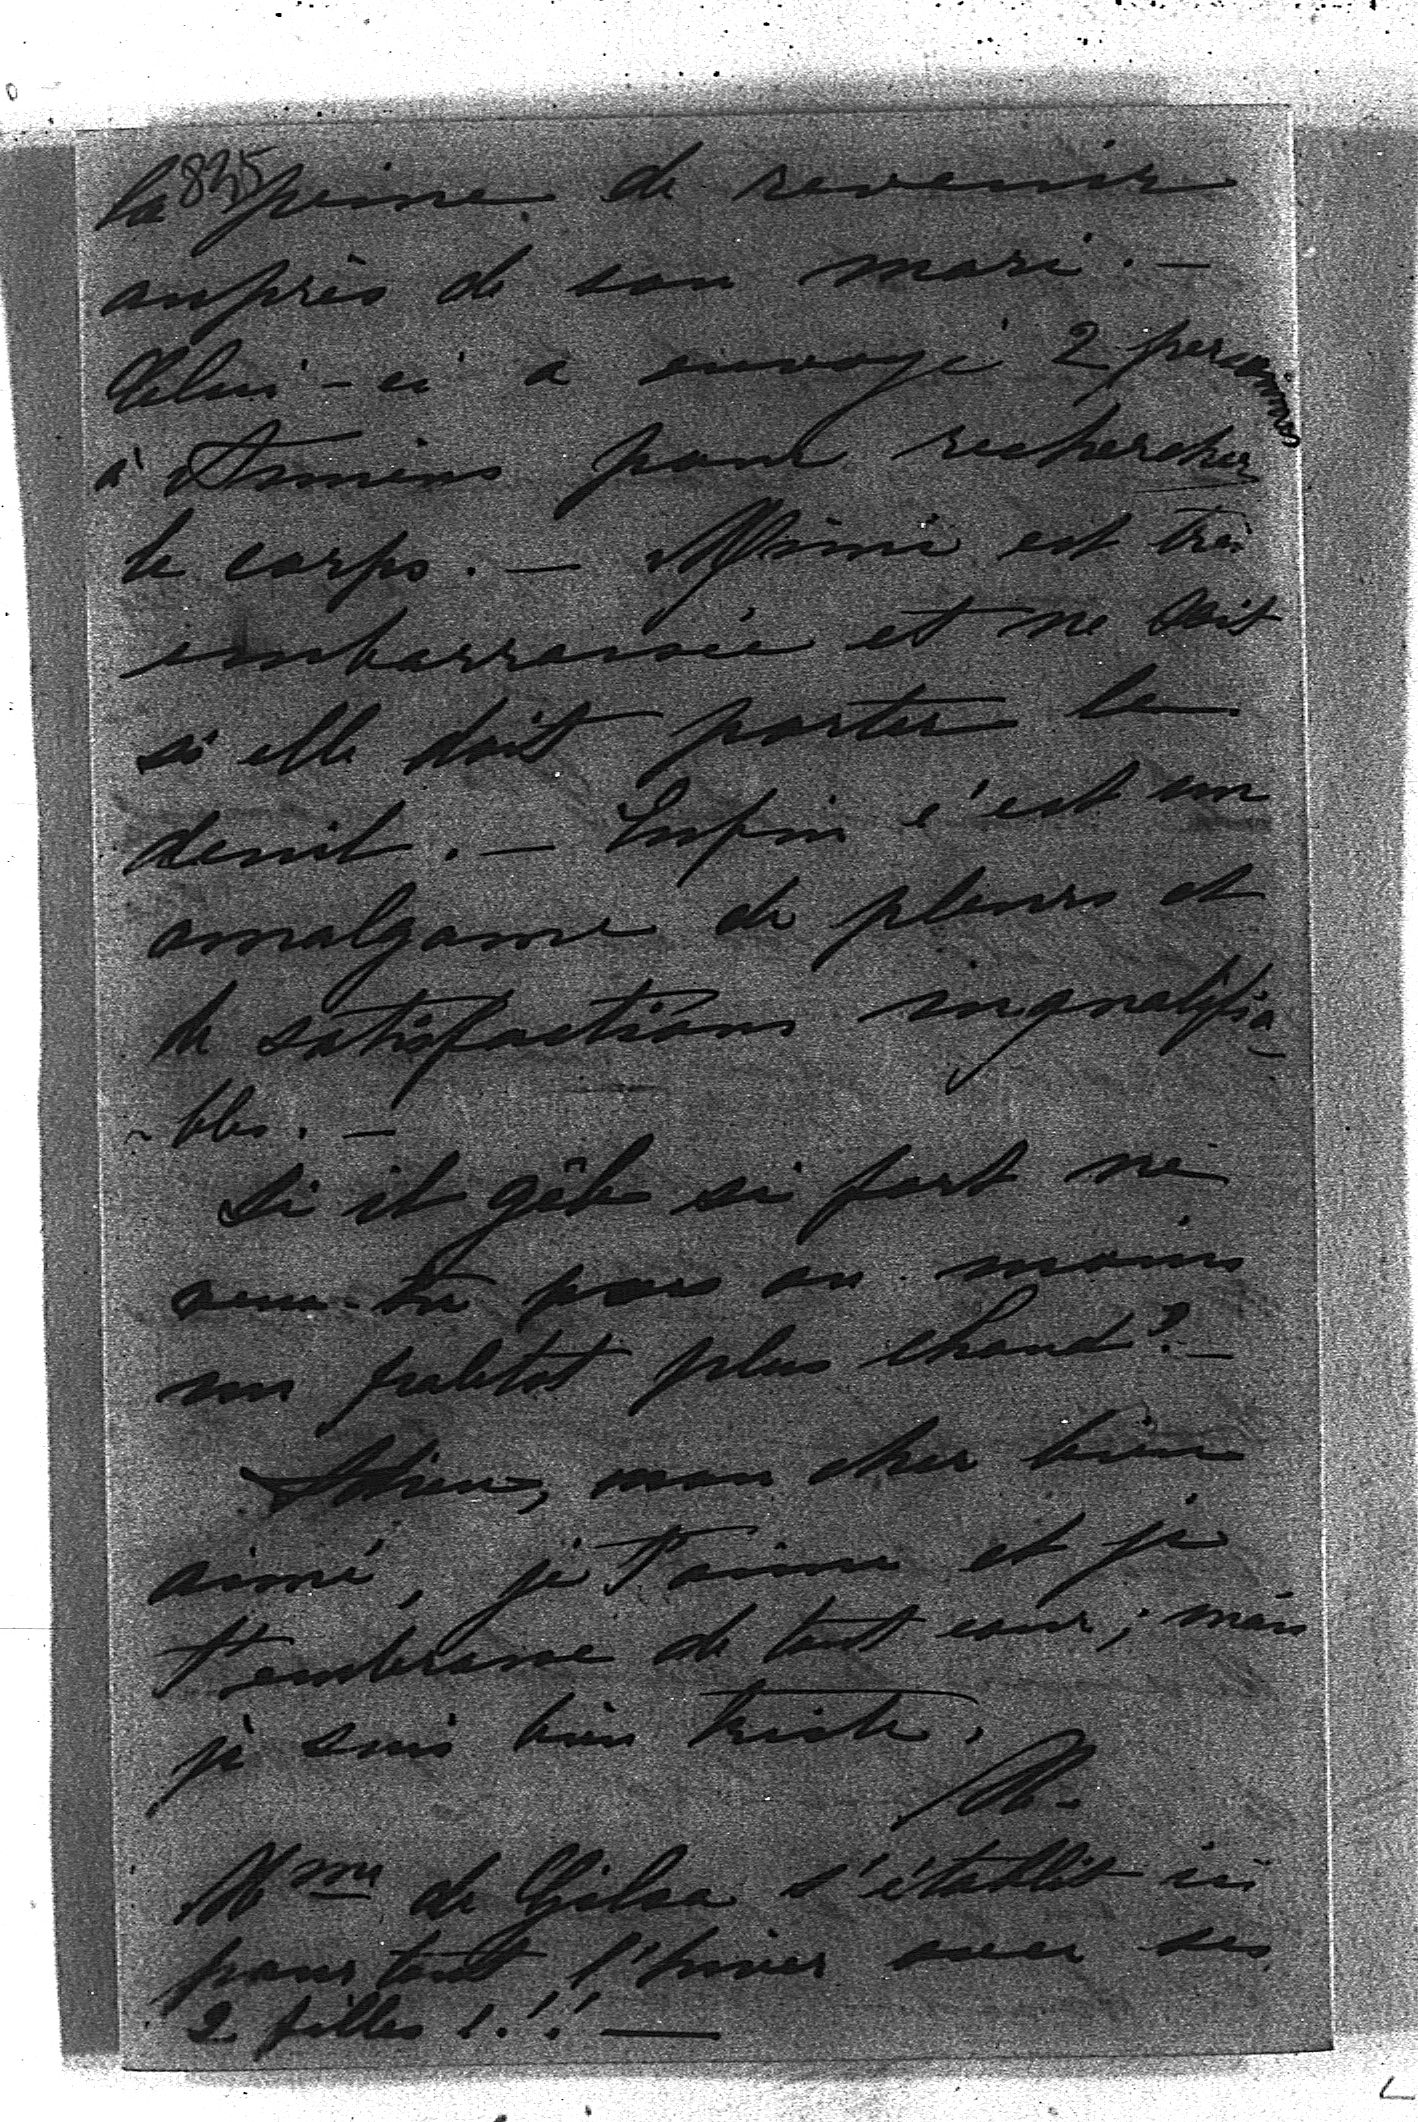 835
la peine de revenir
auprès de son mari. —
Celui-ci a envoyé 2 personnes
à Amiens pour rechercher
le corps. — Mimi est très
embarrassée et ne sait
si elle doit porter le
deuil. — Enfin c'est un
amalgame de pleurs et
de satisfactions inqualifia-
-bles. —
Si il gèle si fort ne
veux-tu pas au moins
un paletot plus chaud? —
Adieu, mon cher bien
aimé, je t'aime et je
t'embrasse de tout cœur; mais
je suis bien triste.
M.
Mme de Gilsa s'établit ici
pour tout l'hiver avec ses
2 filles!!! —